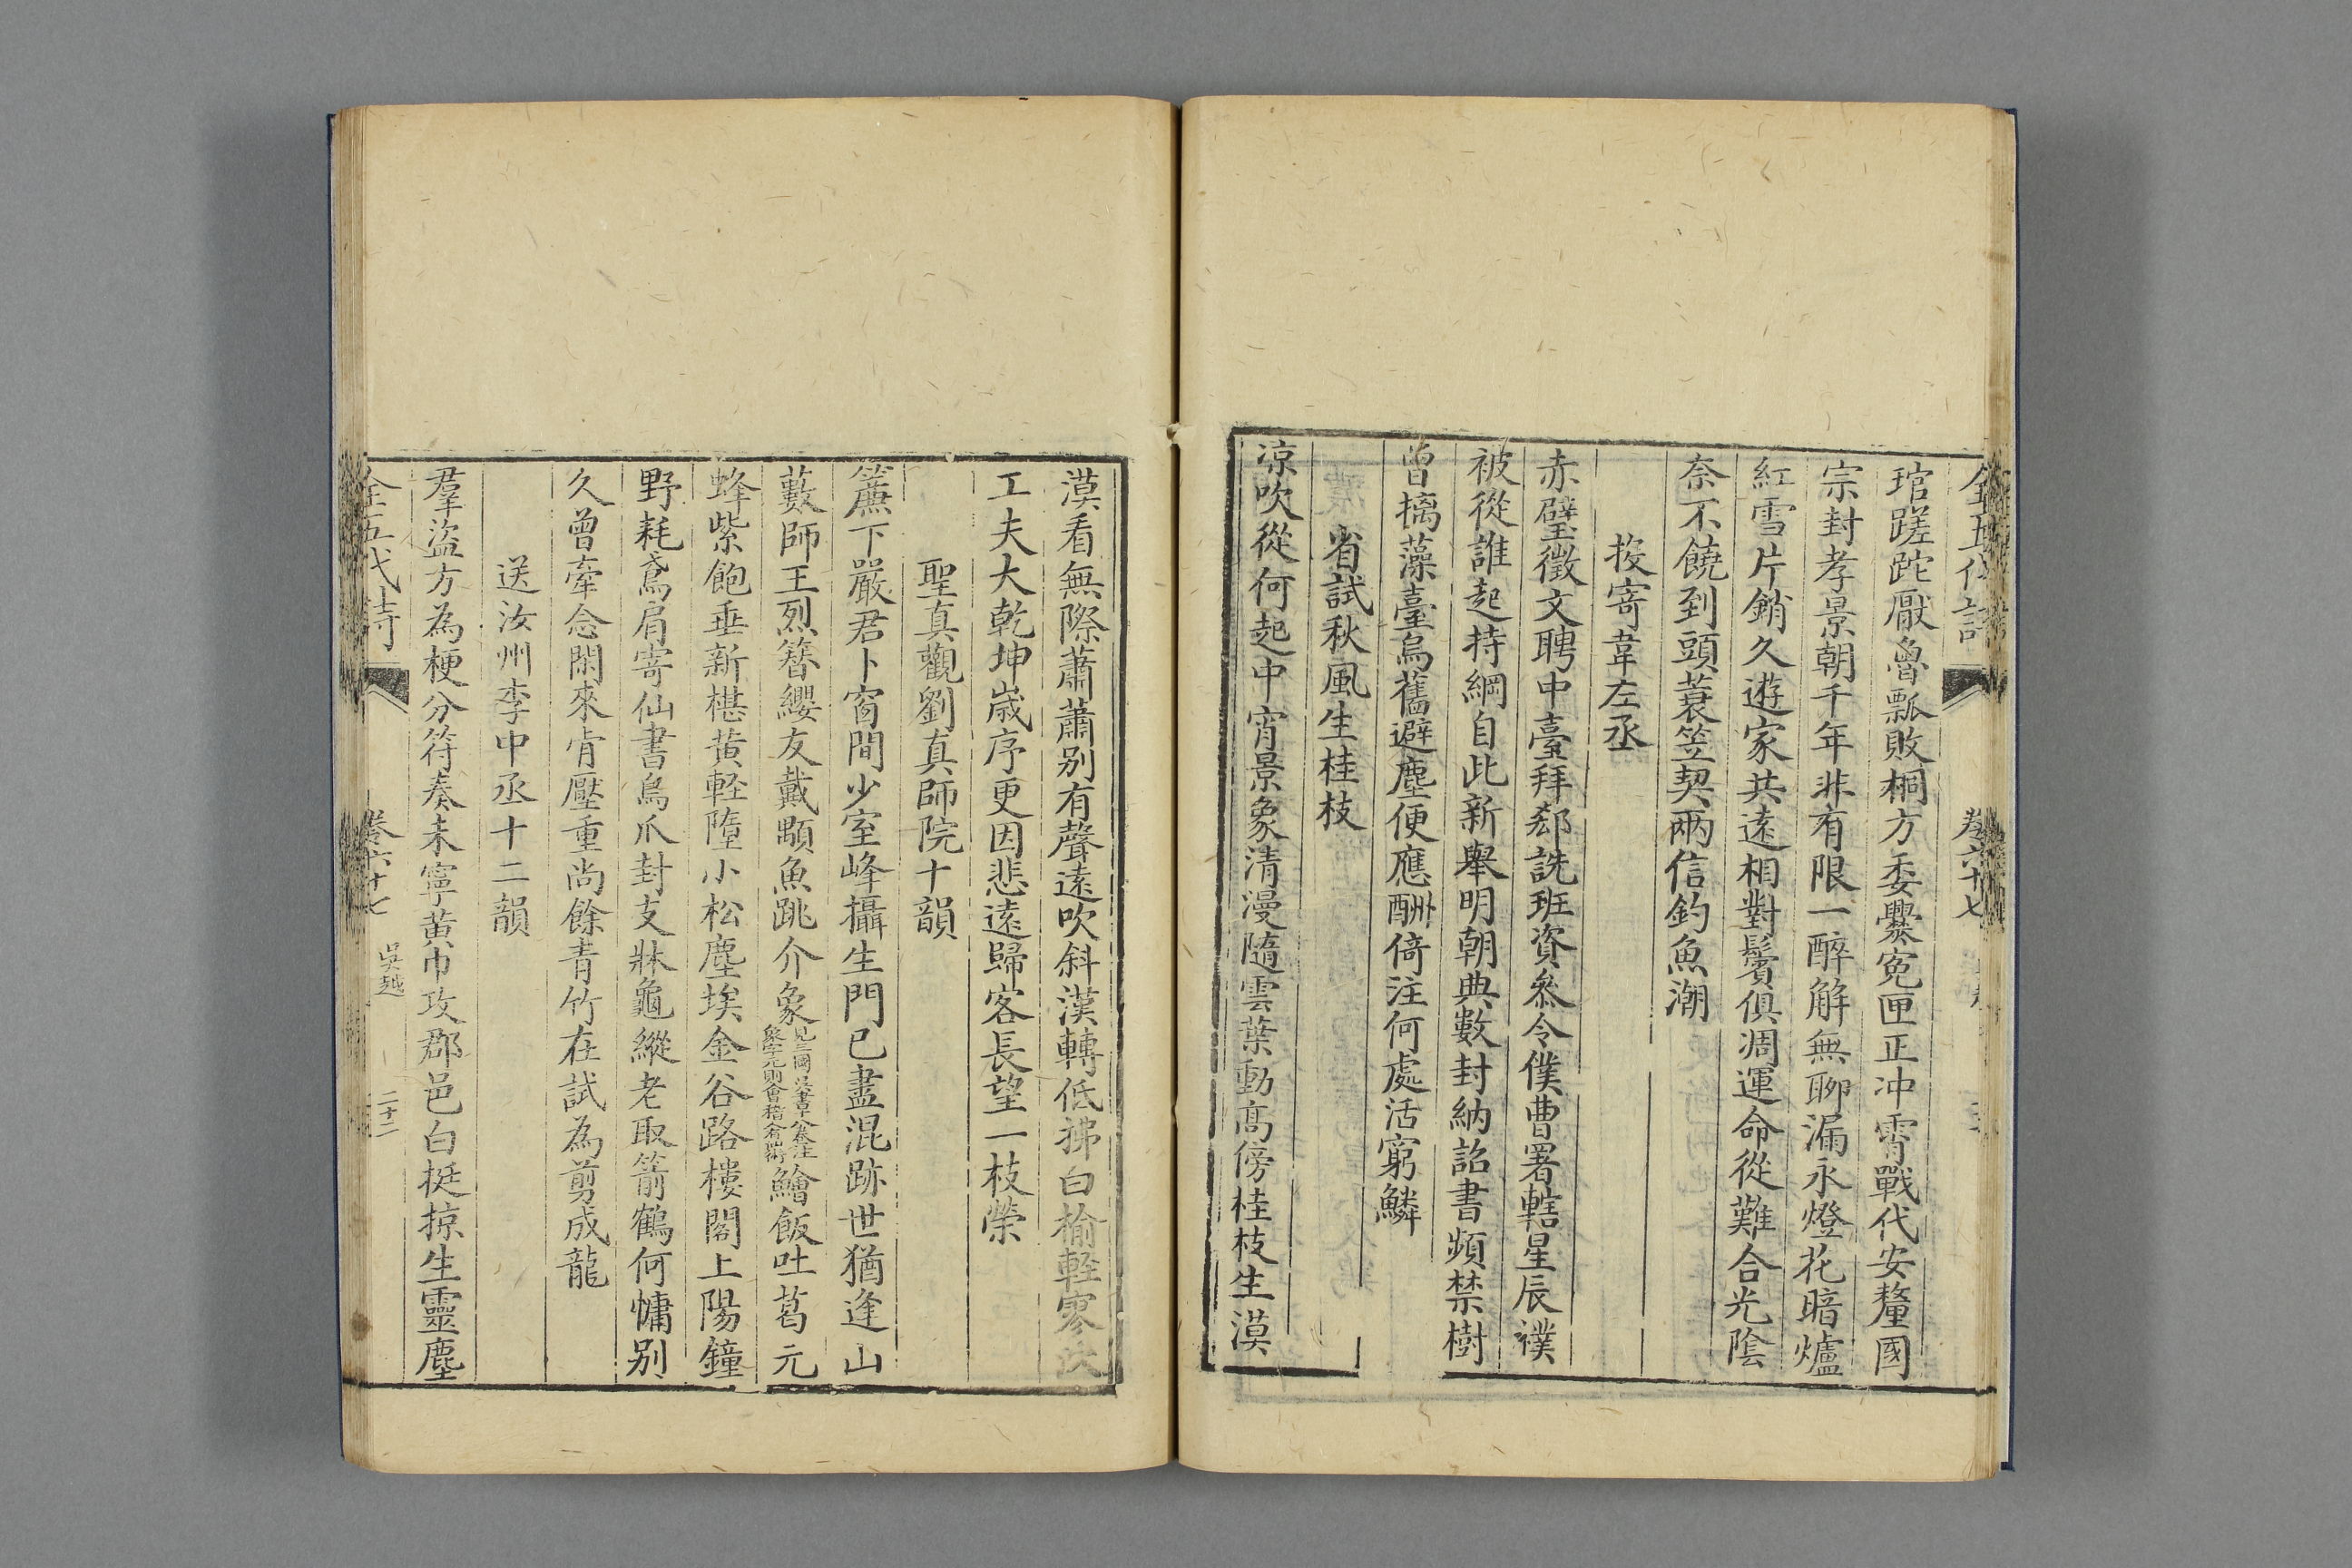 琯蹉跎厭魯瓢敗桐方委爨寃匣正冲霄戰代安釐國
宗封孝景朝千年非有限一醉解無聊漏永燈花暗爐
紅雪片銷久遊家共遠相對鬢俱凋運命從難合光陰
奈不饒到頭蓑笠契兩信釣魚潮
投寄韋左丞
赤壁徵文聘中臺拜郄詵班資叅令僕曹署轄星辰襆
被從誰起持綱自此新舉明朝典數封納詔書頻禁樹
曾摛藻臺烏舊避塵便應酬倚注何處活窮鱗
省試秋風生桂枝
涼吹從何起中宵景象清漫隨雲葉動高傍桂枝生漠
漠看無際蕭蕭别有聲遠吹斜漢轉低拂白榆輕寥泬
工夫大乾坤歲序更因悲遠歸客長望一枝榮
聖真觀劉真師院十韻
簾下嚴君卜窗間少室峰攝生門已盡混跡世猶逢山
藪師王烈簪纓友戴顒魚跳介象見三國吳書八卷注象字元則會稽人有術鱠飯吐葛元
蜂紫飽垂新椹黄輕墮小松塵埃金谷路樓閣上陽鐘
野耗鳶肩寄仙書鳥爪封支牀龜縱老取箭鶴何慵别
久曾牽念閑來肯壓重尚餘青竹在試為剪成龍
送汝州李中丞十二韻
羣盜方為梗分符奏未寧黄巾攻郡邑白挺掠生靈塵
全五代詩 卷六十七 吳越 二十二